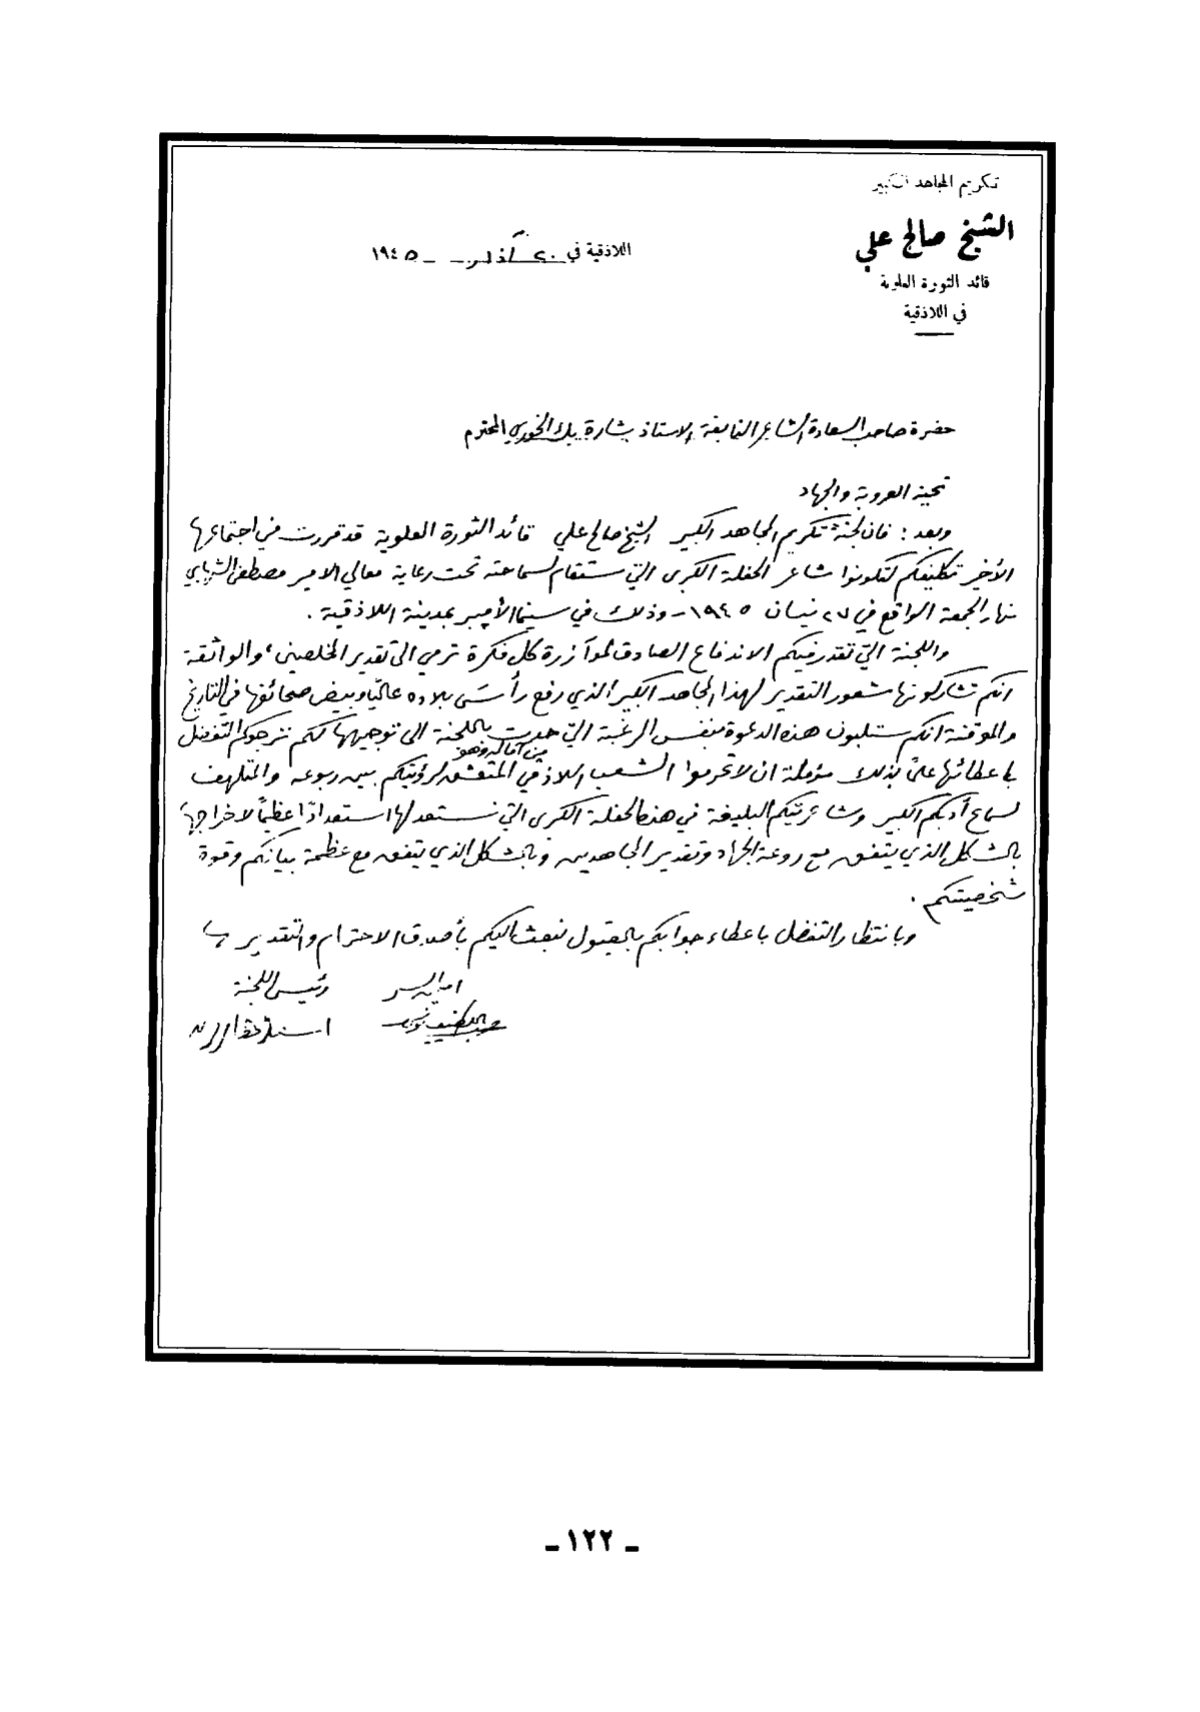 تكريم المجاهد الكبير
الشيخ صالح علي
قائد الثورة العلوية
في اللاذقية
اللاذقية في ٢٠ آذار ١٩٤٥
حضرة صاحب السعادة الشاعر النابغة الاستاذ بشارة بك الخوري المحترم
تحية العروبة والجهاد
وبعد : فان لجنة تكريم المجاهد الكبير الشيخ صالح علي قائد الثورة العلوية قد قررت في اجتماعها
الأخير تكليفكم لتكونوا شاعر الحفلة الكبرى التي ستقام لسماحته تحت رعاية معالي الامير مصطفى الشهابي
نهار الجمعة الواقع في ٢٧ نيسان ١٩٤٥ - وذلك في سينما الأمير بمدينة اللاذقية .
واللجنة التي تقدر فيكم الاندفاع الصادق لموآزرة كل فكرة ترمي الى تقدير المخلصين ، والواثقة
انكم تشاركونها شعور التقدير لهذا المجاهد الكبير الذي رفع رأس بلاده عالياً وبيض صحائفها في التاريخ
والموقنة انكم ستلبون هذه الدعوة بنفس الرغبة التي حدت باللجنة الى توجيهها لكم نرجوكم التفضل
باعطائها علماً بذلك مؤملة ان لا تحرموا الشعب اللاذقي من آماله وهو المتعشق لرؤيتكم بين ربوعه والمتلهف
لسماع أدبكم الكبير وشاعريتكم البليغة في هذه الحفلة الكبرى التي نستعد لها استعداداً عظيماً لاخراجها
بالشكل الذي يتفق مع روعة الجهاد وتقدير المجاهدين وبالشكل الذي يتفق مع عظمة بيانكم وقوة
شخصيتكم .
وبانتظار التفضل باعطاء جوابكم بالقبول نبعث اليكم بأصدق الاحترام والتقدير
امين السر رئيس اللجنة
- ١٢٢ -